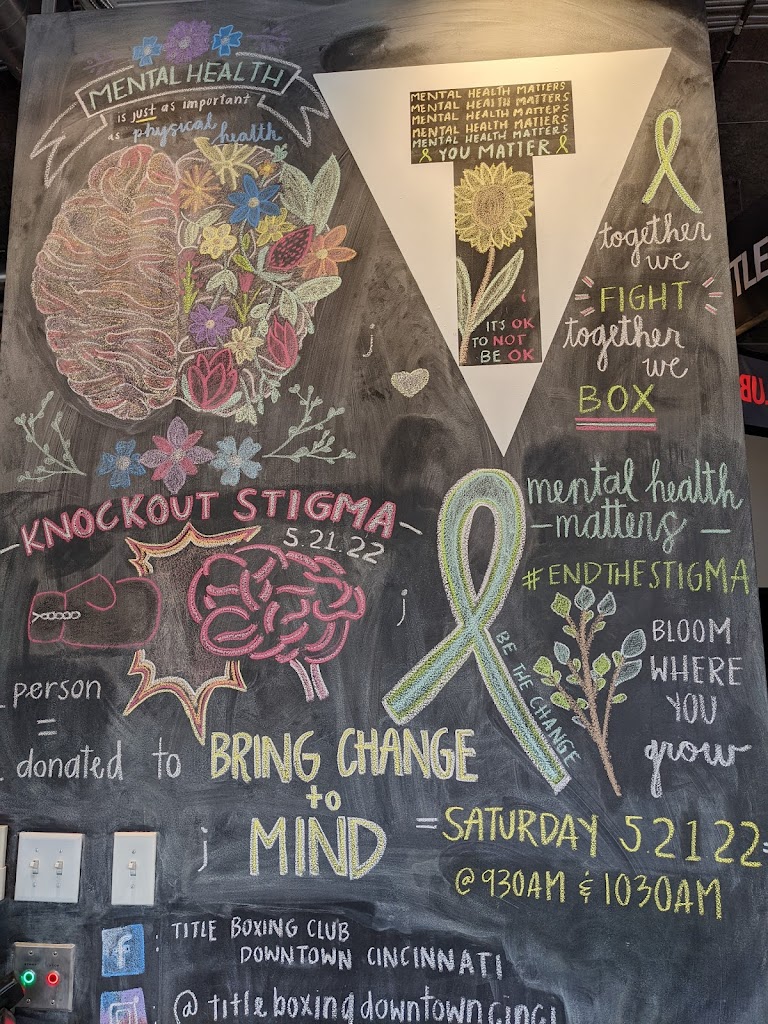 MENTAL HEALTH
is just as important
as physical health
MENTAL HEALTH MATTERS
MENTAL HEALTH MATTERS
MENTAL HEALTH MATTERS
MENTAL HEALTH MATTERS
MENTAL HEALTH MATTERS
YOU MATTER
IT'S OK
TO NOT
BE OK
together
we
FIGHT
together
we
BOX
KNOCKOUT STIGMA
5.21.22
person
=
donated to BRING CHANGE
to
MIND
mental health
- matters -
#ENDTHESTIGMA
BE THE CHANGE
BLOOM
WHERE
YOU
grow
= SATURDAY 5.21.22 =
@ 930AM & 1030AM
f
TITLE BOXING CLUB
DOWNTOWN CINCINNATI
@titleboxingdowntowncinci
TLE
BU